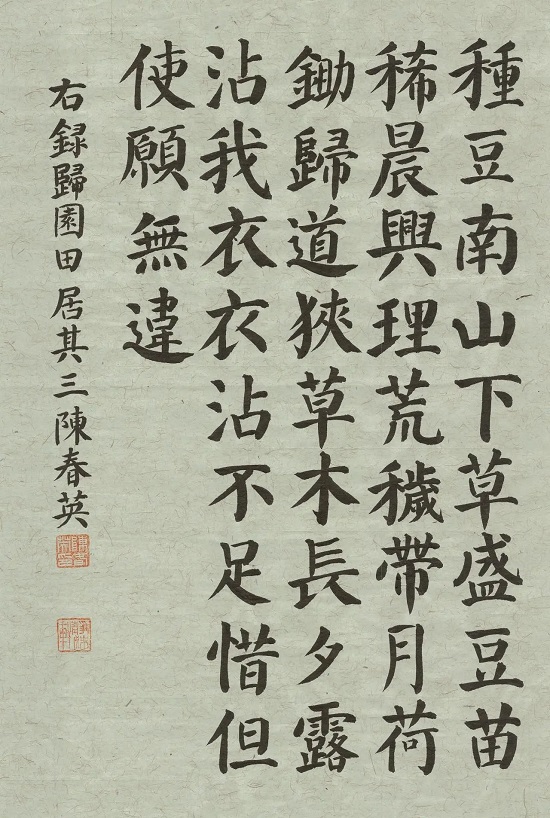 種豆南山下草盛豆苗
稀晨興理荒穢帶月荷
鋤歸道狹草木長夕露
沾我衣衣沾不足惜但
使願無違
右録歸園田居其三陳春英